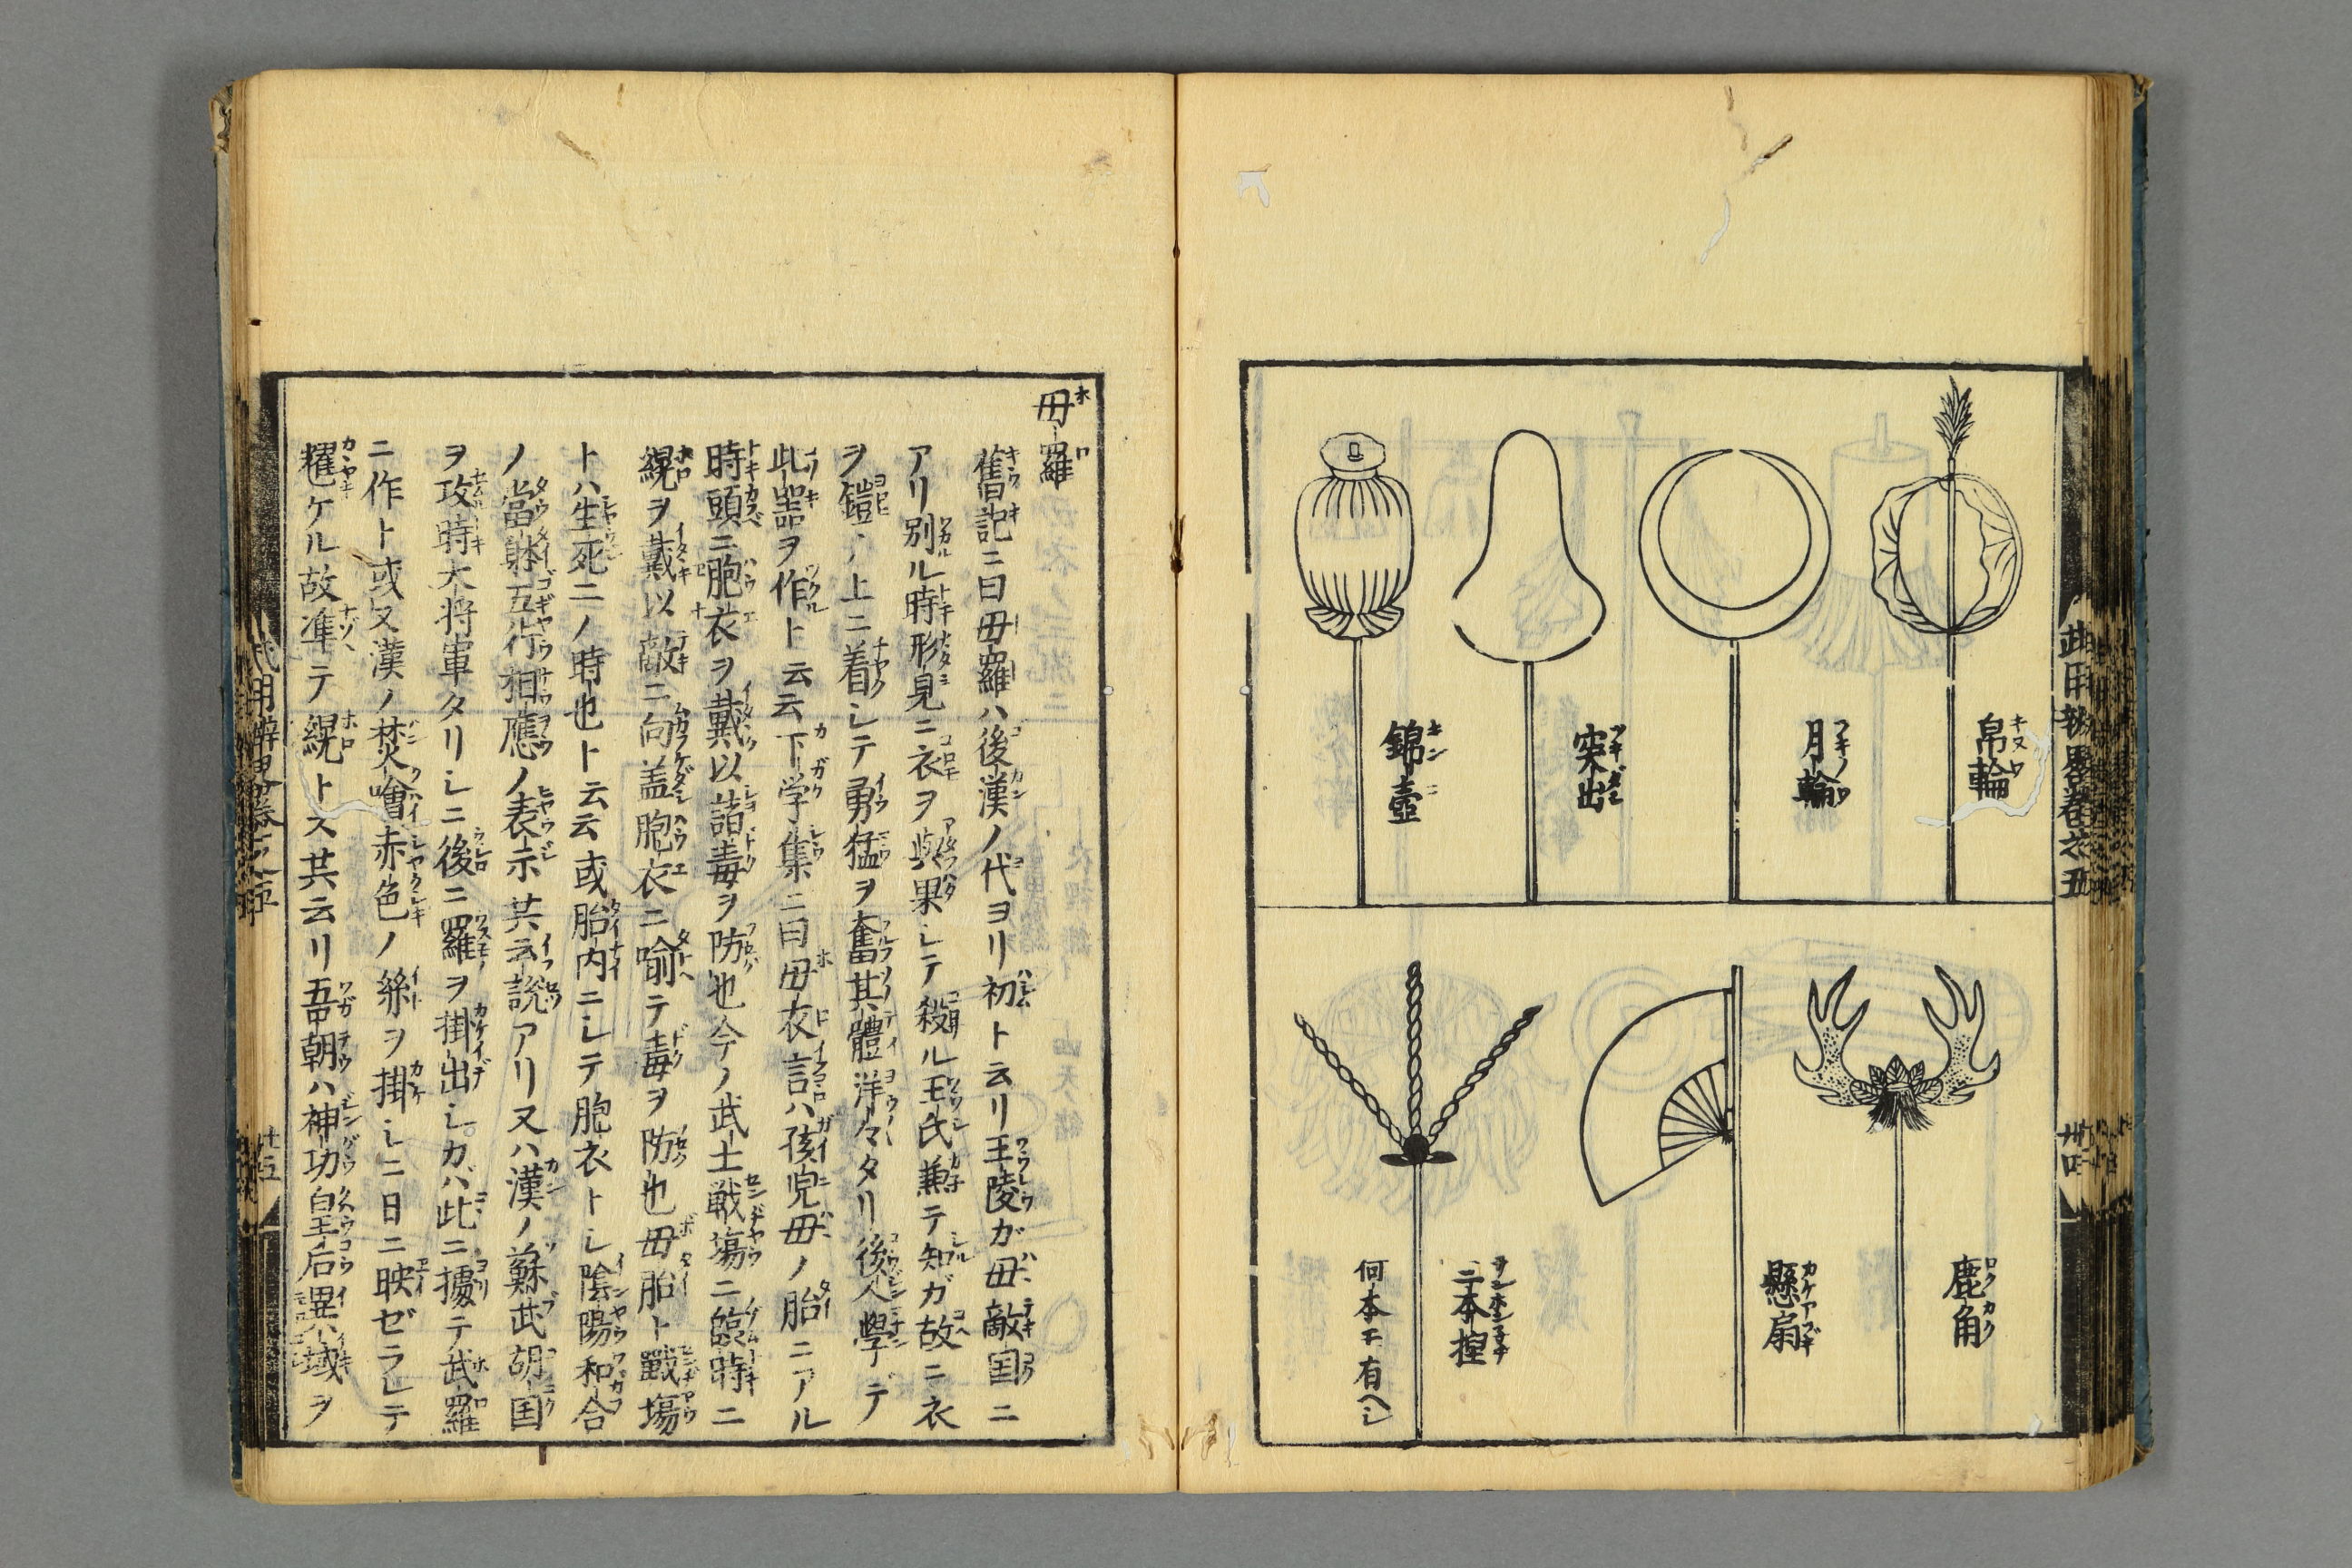 帛輪
月輪
突出
錦壺
鹿角
懸扇
三本捏
何本モ有ヘシ
母羅
舊記ニ曰母羅ハ後漢ノ代ヨリ初ト云リ王陵ガ母敵国ニ
アリ別ル時形見ニ衣ヲ與果シテ殺ル王氏兼テ知ガ故ニ衣
ヲ鎧ノ上ニ着シテ勇猛ヲ奮其體洋々タリ後人學デ
此噐ヲ作ト云云下学集ニ曰母衣言ハ孩児母ノ胎ニアル
時頭ニ胞衣ヲ戴以諸毒ヲ防也今ノ武士戦塲ニ臨時ニ
縨ヲ戴以敵ニ向盖胞衣ニ喻テ毒ヲ防也母胎ト戰塲
トハ生死二ノ時也ト云云或胎内ニシテ胞衣トシ陰陽和合
ノ當躰五行相應ノ表示共云説アリ又ハ漢ノ蘇武胡国
ヲ攻時大将軍タリシニ後ニ羅ヲ掛出シカバ此ニ擾テ武羅
ニ作ト或又漢ノ樊噲赤色ノ絲ヲ掛シニ日ニ映ゼラレテ
糶ケル故準テ縨トス共云リ吾朝ハ神功皇后異域ヲ